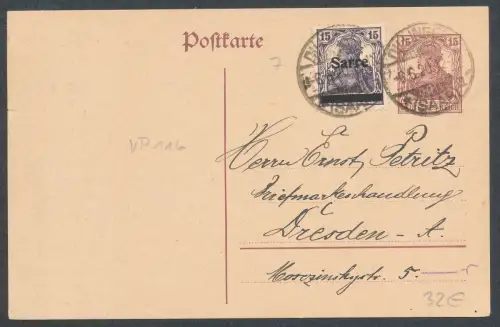 Postkarte
15 15
Sarre
15
VP 116
Herrn Ernst Petritz
Briefmarkenhandlung
Dresden - A.
Morczinskystr. 5.
32E